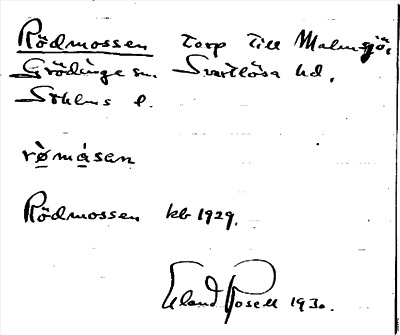 Rödmossen torp till Malmsjö,
Grödinge sn. Svartlösa hd.
Sthlms l.
rö̀måsan
Rödmossen kb 1929.
Erland Rosell 1930.